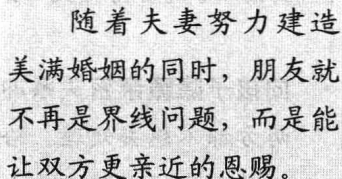 随着夫妻努力建造
美满婚姻的同时，朋友就
不再是界线问题，而是能
让双方更亲近的恩赐。